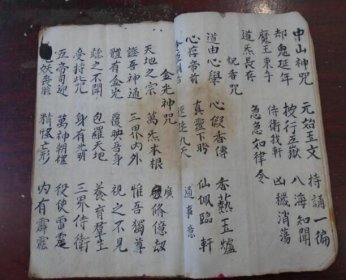 中山神咒 元始玉文 持誦一遍
却鬼延年 按行五嶽 八海知聞
魔王束手 侍衛我軒 凶穢消蕩
道炁長存 急急如律令
祝香咒
道由心學 心假香傳 香熱玉爐
心存帝前 真靈下盼 仙佩臨軒
九天
金光神咒
天地之宗 萬炁本根 廣修億劫
證吾神通 三界内外 惟吾獨尊
體有金光 覆映吾身 視之不見
聽之不聞 包羅天地 養育群生
受持此咒 身有光明 三界侍衛
五帝司迎 萬神朝禮 役使雷霆
妖喪胆 精怪亡形 内有霹靂